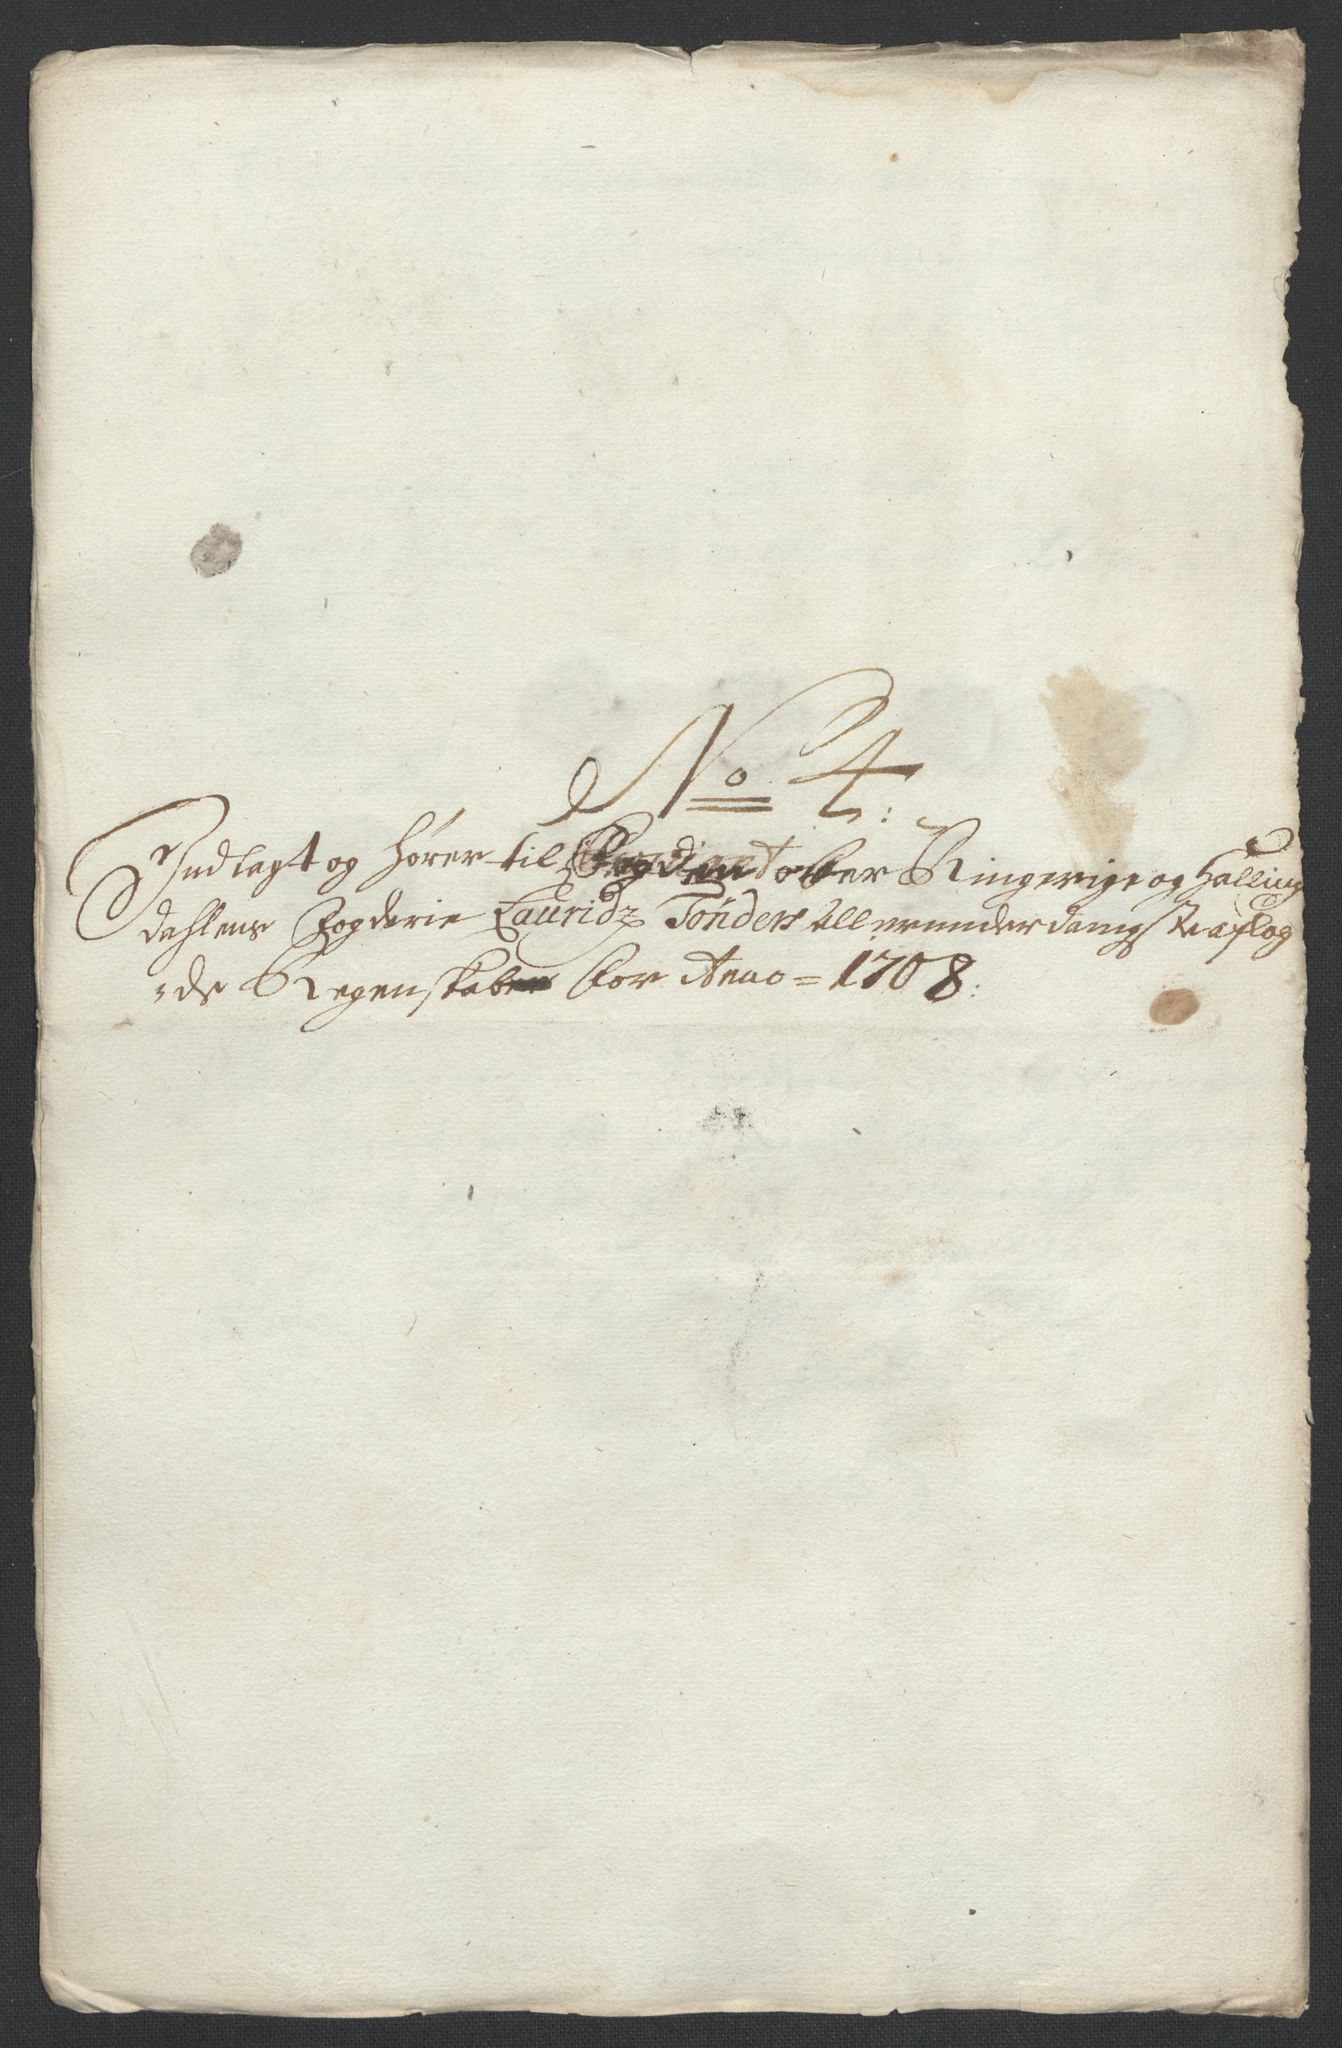 No 4:
Indlagt og hører til Fogden ober Ringerige og Halling
dahlens Fogderie Lauridz Tønders Allerunderdanigste aflag
:de Regenskaber for Anno = 1708: